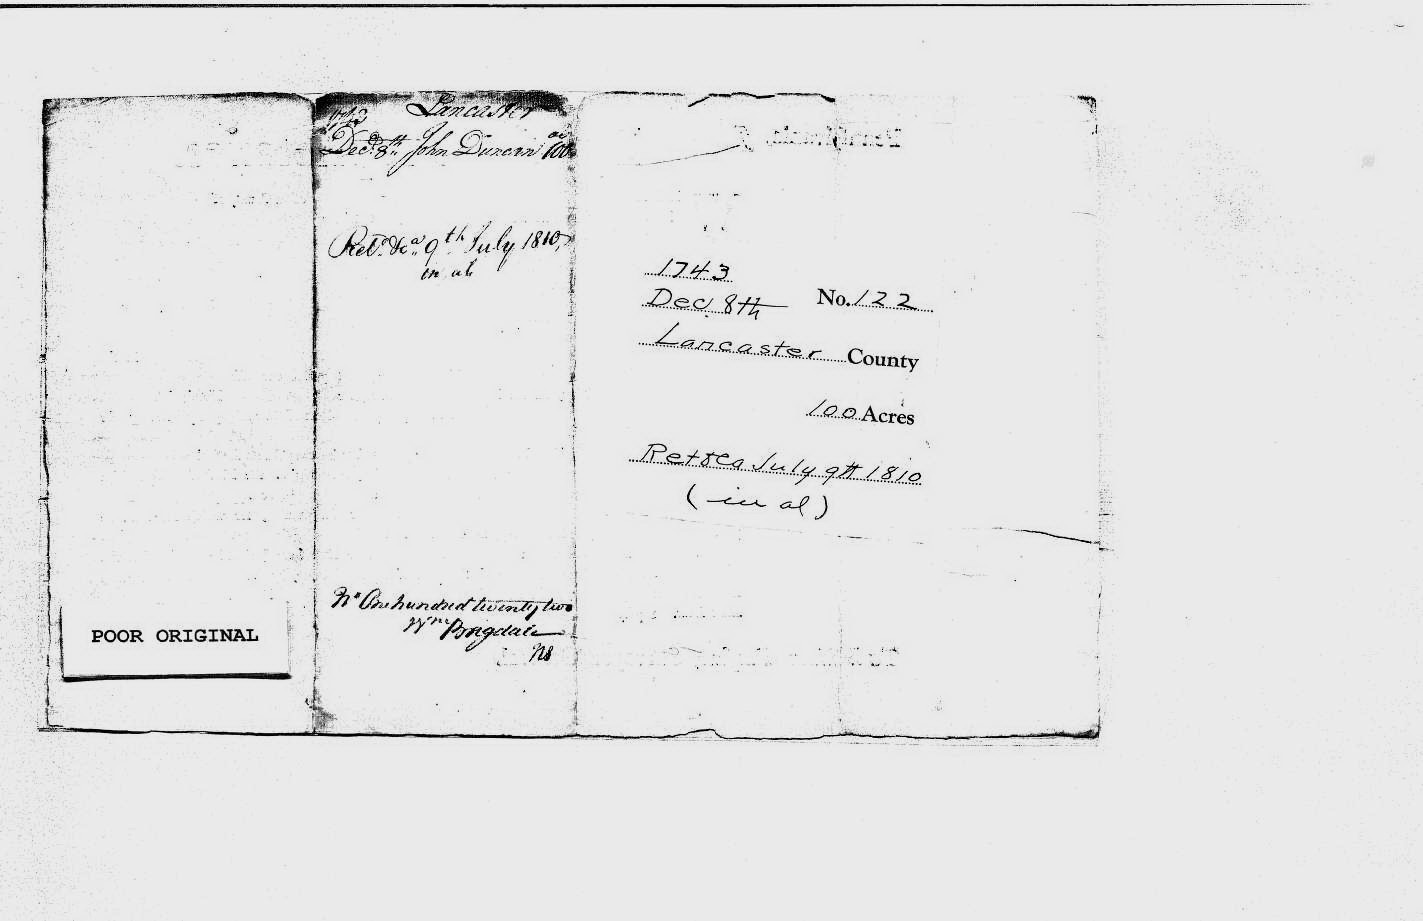 Lancaster
1743
Decr. 8th John Duncan 100 ac
Retd. &ca. 9th July 1810,
in al
No One hundred twenty two
Wm
POOR ORIGINAL
1743
Dec. 8th No. 122
Lancaster County
100 Acres
Ret &ca July 9th 1810
(in al)